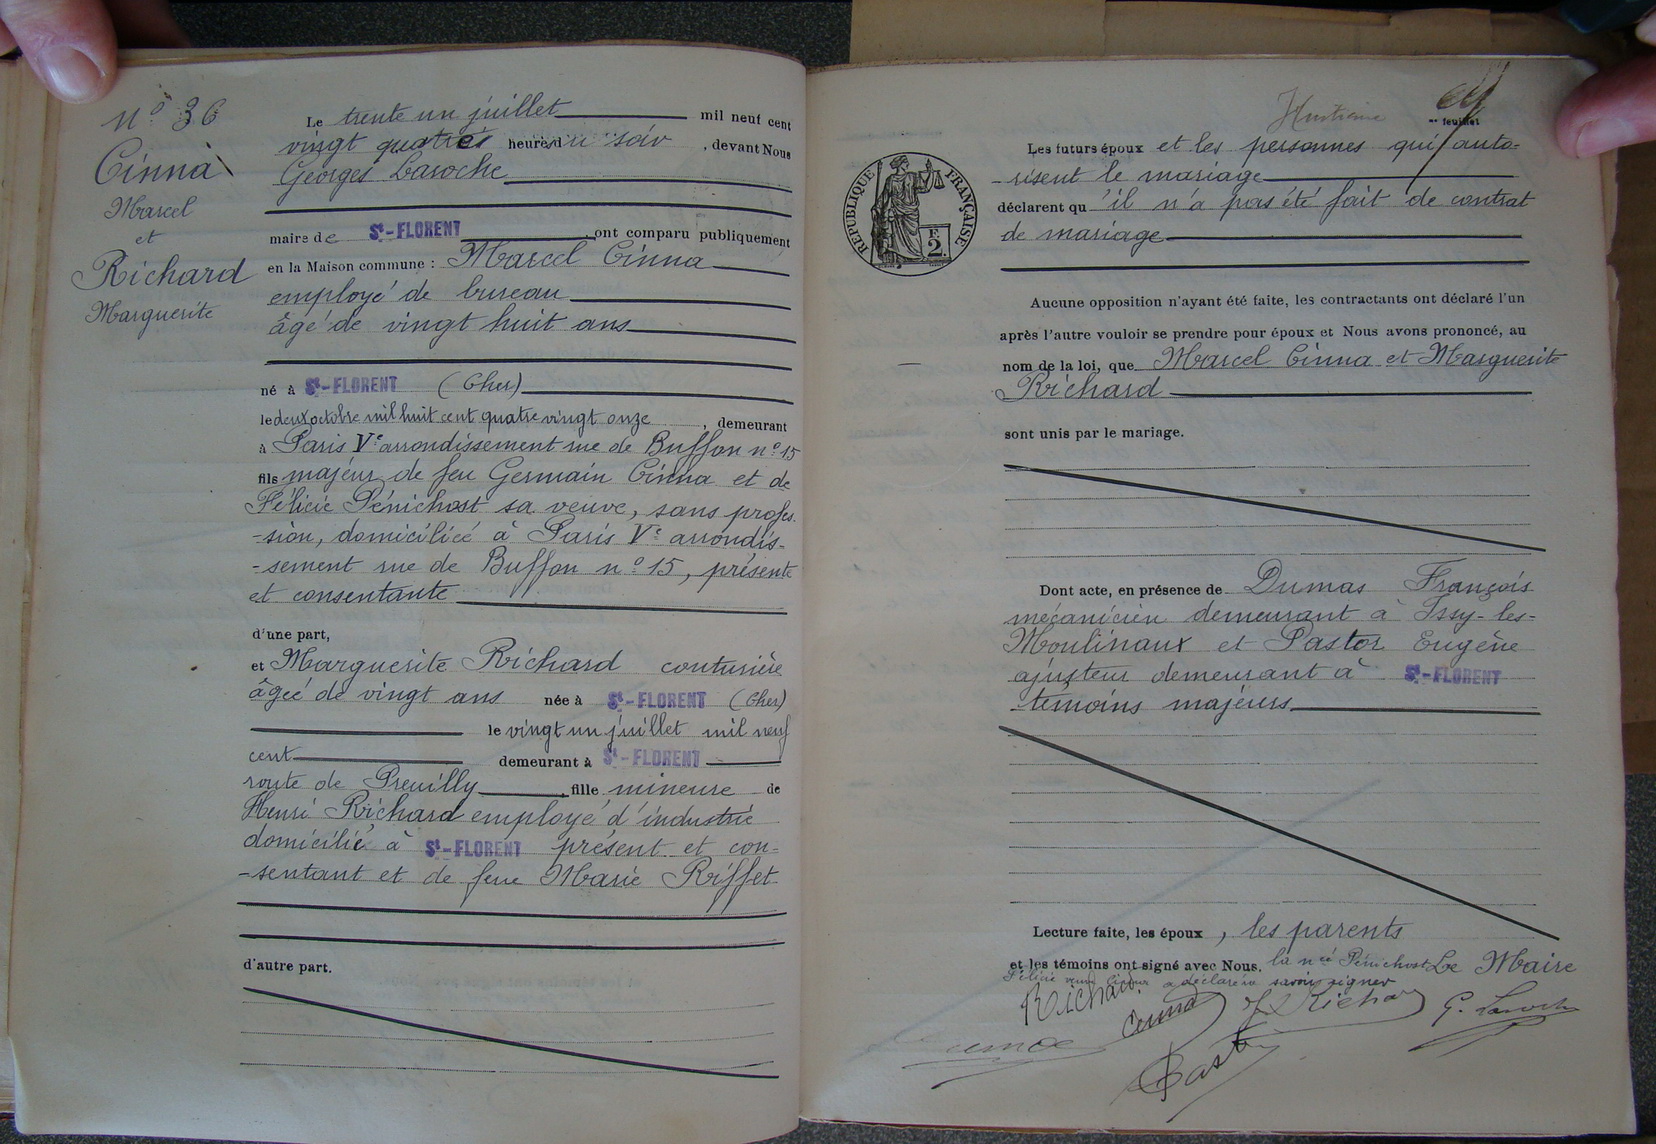 N° 36
Cinna
Marcel
et
Richard
Marguerite
Le trente un juillet mil neuf cent
vingt quatre heures du soir, devant Nous
Georges Laroche
maire de St-FLORENT ont comparu publiquement
en la Maison commune : Marcel Cinna
employé de bureau
âgé de vingt huit ans
né à St-FLORENT (Cher)
le deux octobre mil huit cent quatre vingt onze, demeurant
à Paris Ve arrondissement rue de Buffon n° 15
fils majeur de feu Germain Cinna et de
Félicie Pénichost sa veuve, sans profes-
-sion, domiciliée à Paris Ve arrondis-
-sement rue de Buffon n° 15, présente
et consentante
d'une part,
et Marguerite Richard couturière
âgée de vingt ans née à St-FLORENT (Cher)
le vingt un juillet mil neuf
cent demeurant à St-FLORENT
route de Preuilly, fille mineure de
Henri Richard employé d'industrie
domicilié à St-FLORENT présent et con-
-sentant et de feue Marie Riffet
d'autre part.
feuillet
RÉPUBLIQUE FRANÇAISE
F.
2.
Les futurs époux et les personnes qui auto-
-risent le mariage
déclarent qu'il n'a pas été fait de contrat
de mariage
Aucune opposition n'ayant été faite, les contractants ont déclaré l'un
après l'autre vouloir se prendre pour époux et Nous avons prononcé, au
nom de la loi, que Marcel Cinna et Marguerite
Richard
sont unis par le mariage.
Dont acte, en présence de Dumas François
mécanicien demeurant à Issy-les-
Moulinaux et Pastor Eugène
ajusteur demeurant à St-FLORENT
témoins majeurs
Lecture faite, les époux, les parents
et les témoins ont signé avec Nous. la née Pénichost Le Maire
Félicie veuve Cinna a déclaré ne savoir signer
Richard
Cinna
Richard
G. Laroche
Pastor